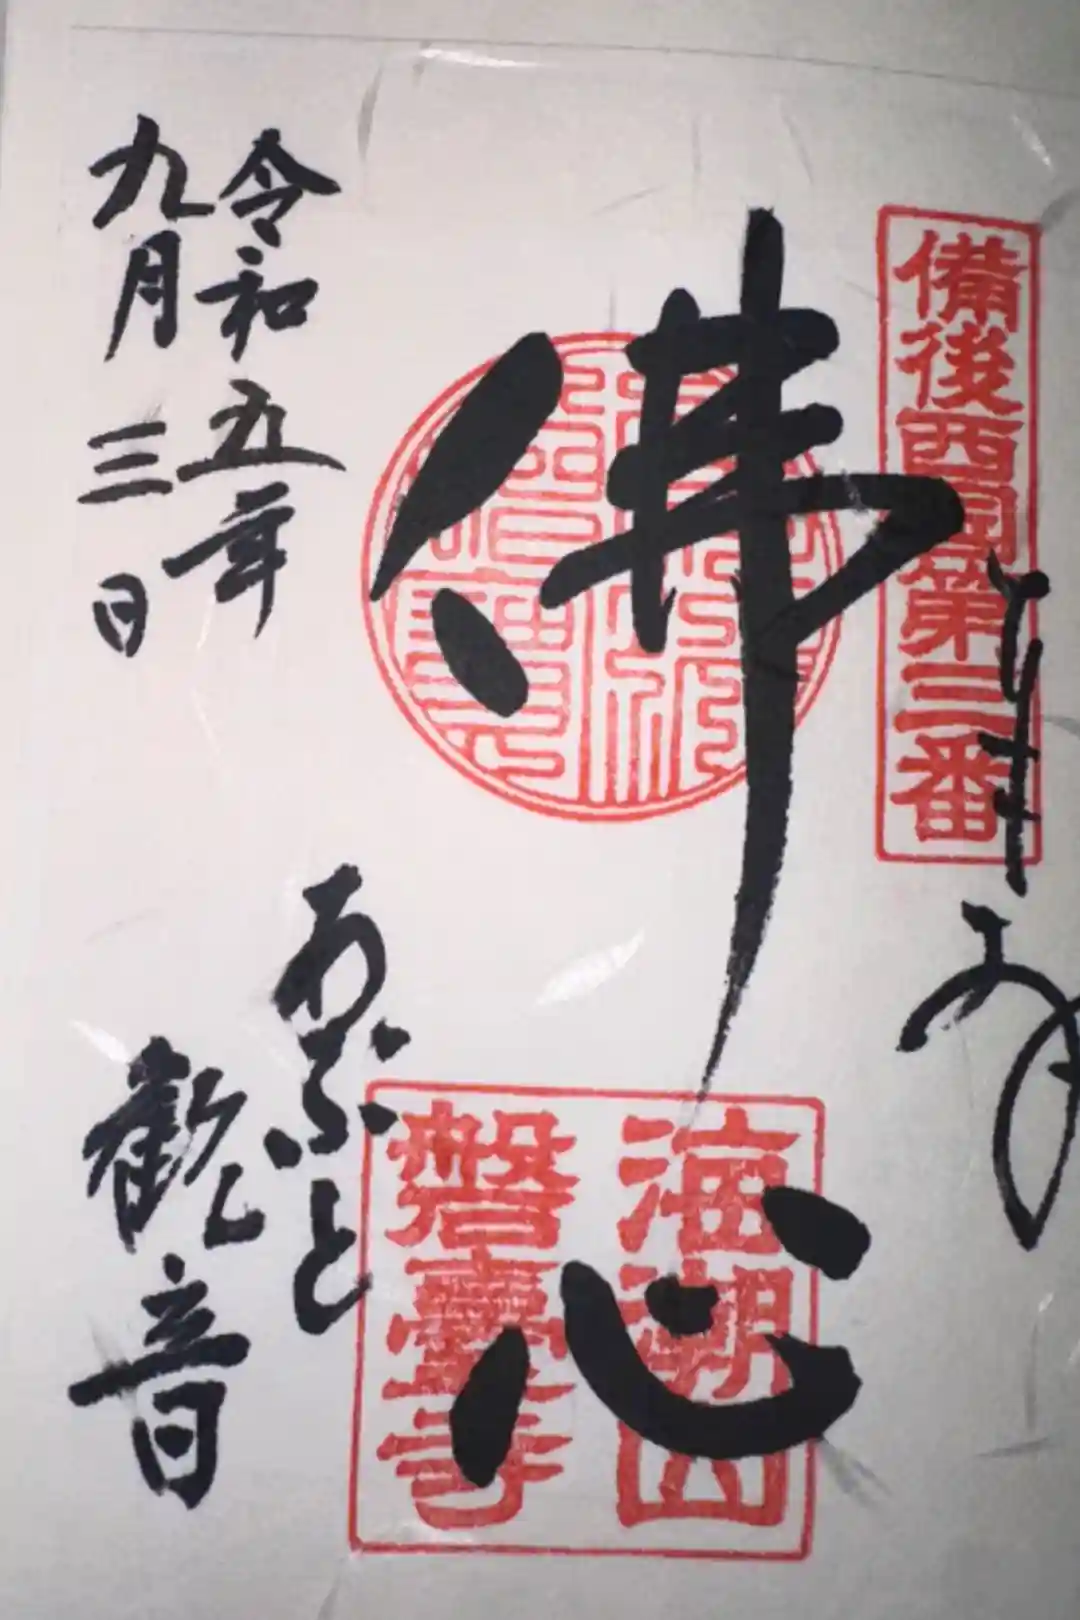 備後西国第三番
奉拝
佛心
海潮山
磐臺寺
令和五年
九月三日
あぶと
観音